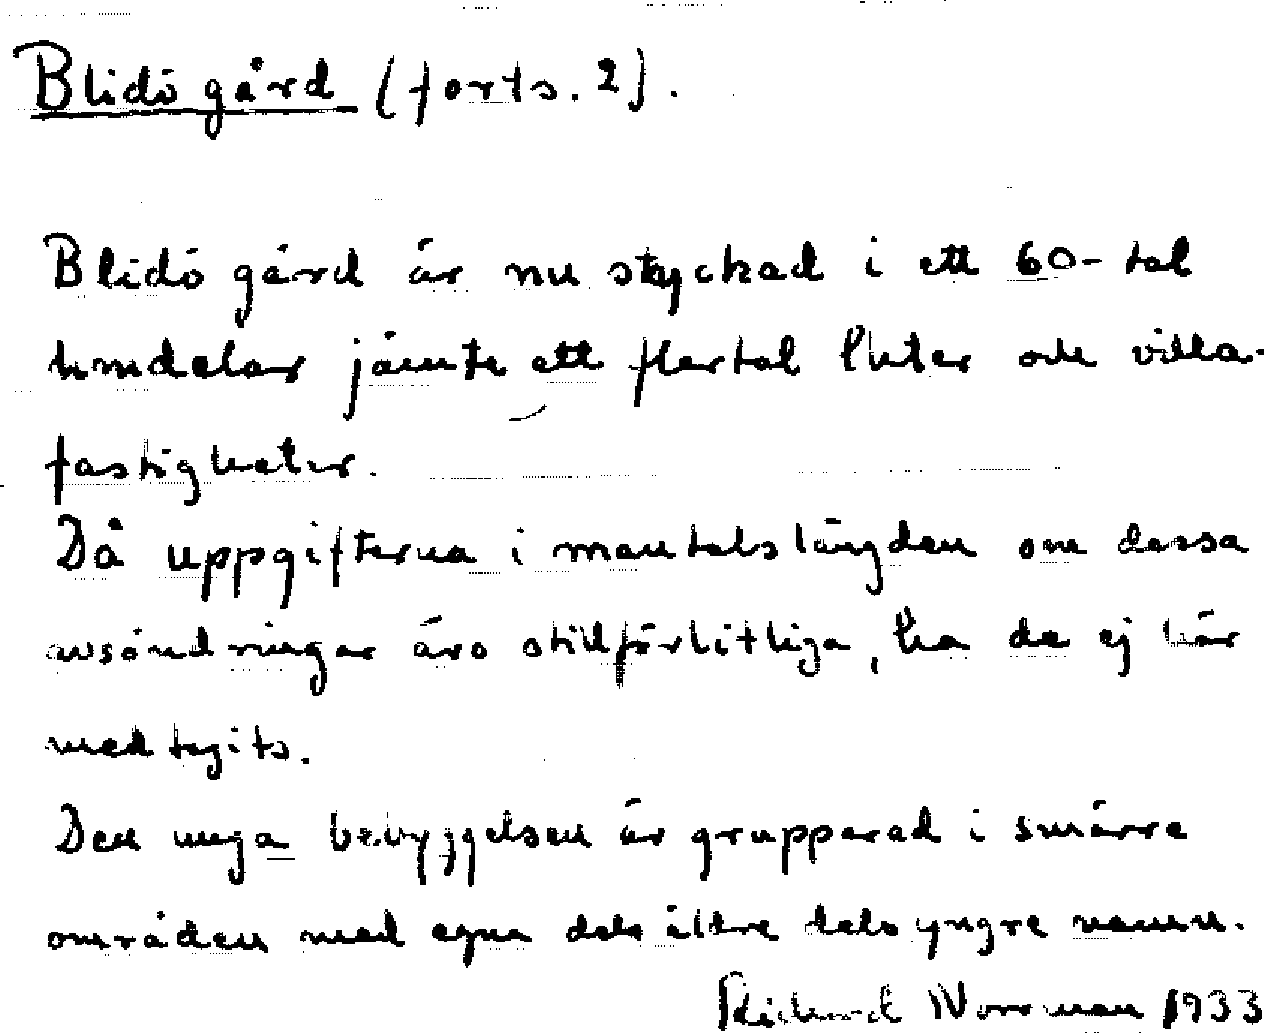 Blidö gård (forts. 2).
Blidö gård är nu styckad i ett 60-tal
hemdelar jämte ett flertal luter och villa-
fastigheter.
Då uppgifterna i mantalslängden om dessa
avsöndringar äro otillförlitliga, ha de ej här
medtagits.
Den unga bebyggelsen är grupperad i smärre
områden med egna dels äldre dels yngre namn.
Rickard Norrman 1933